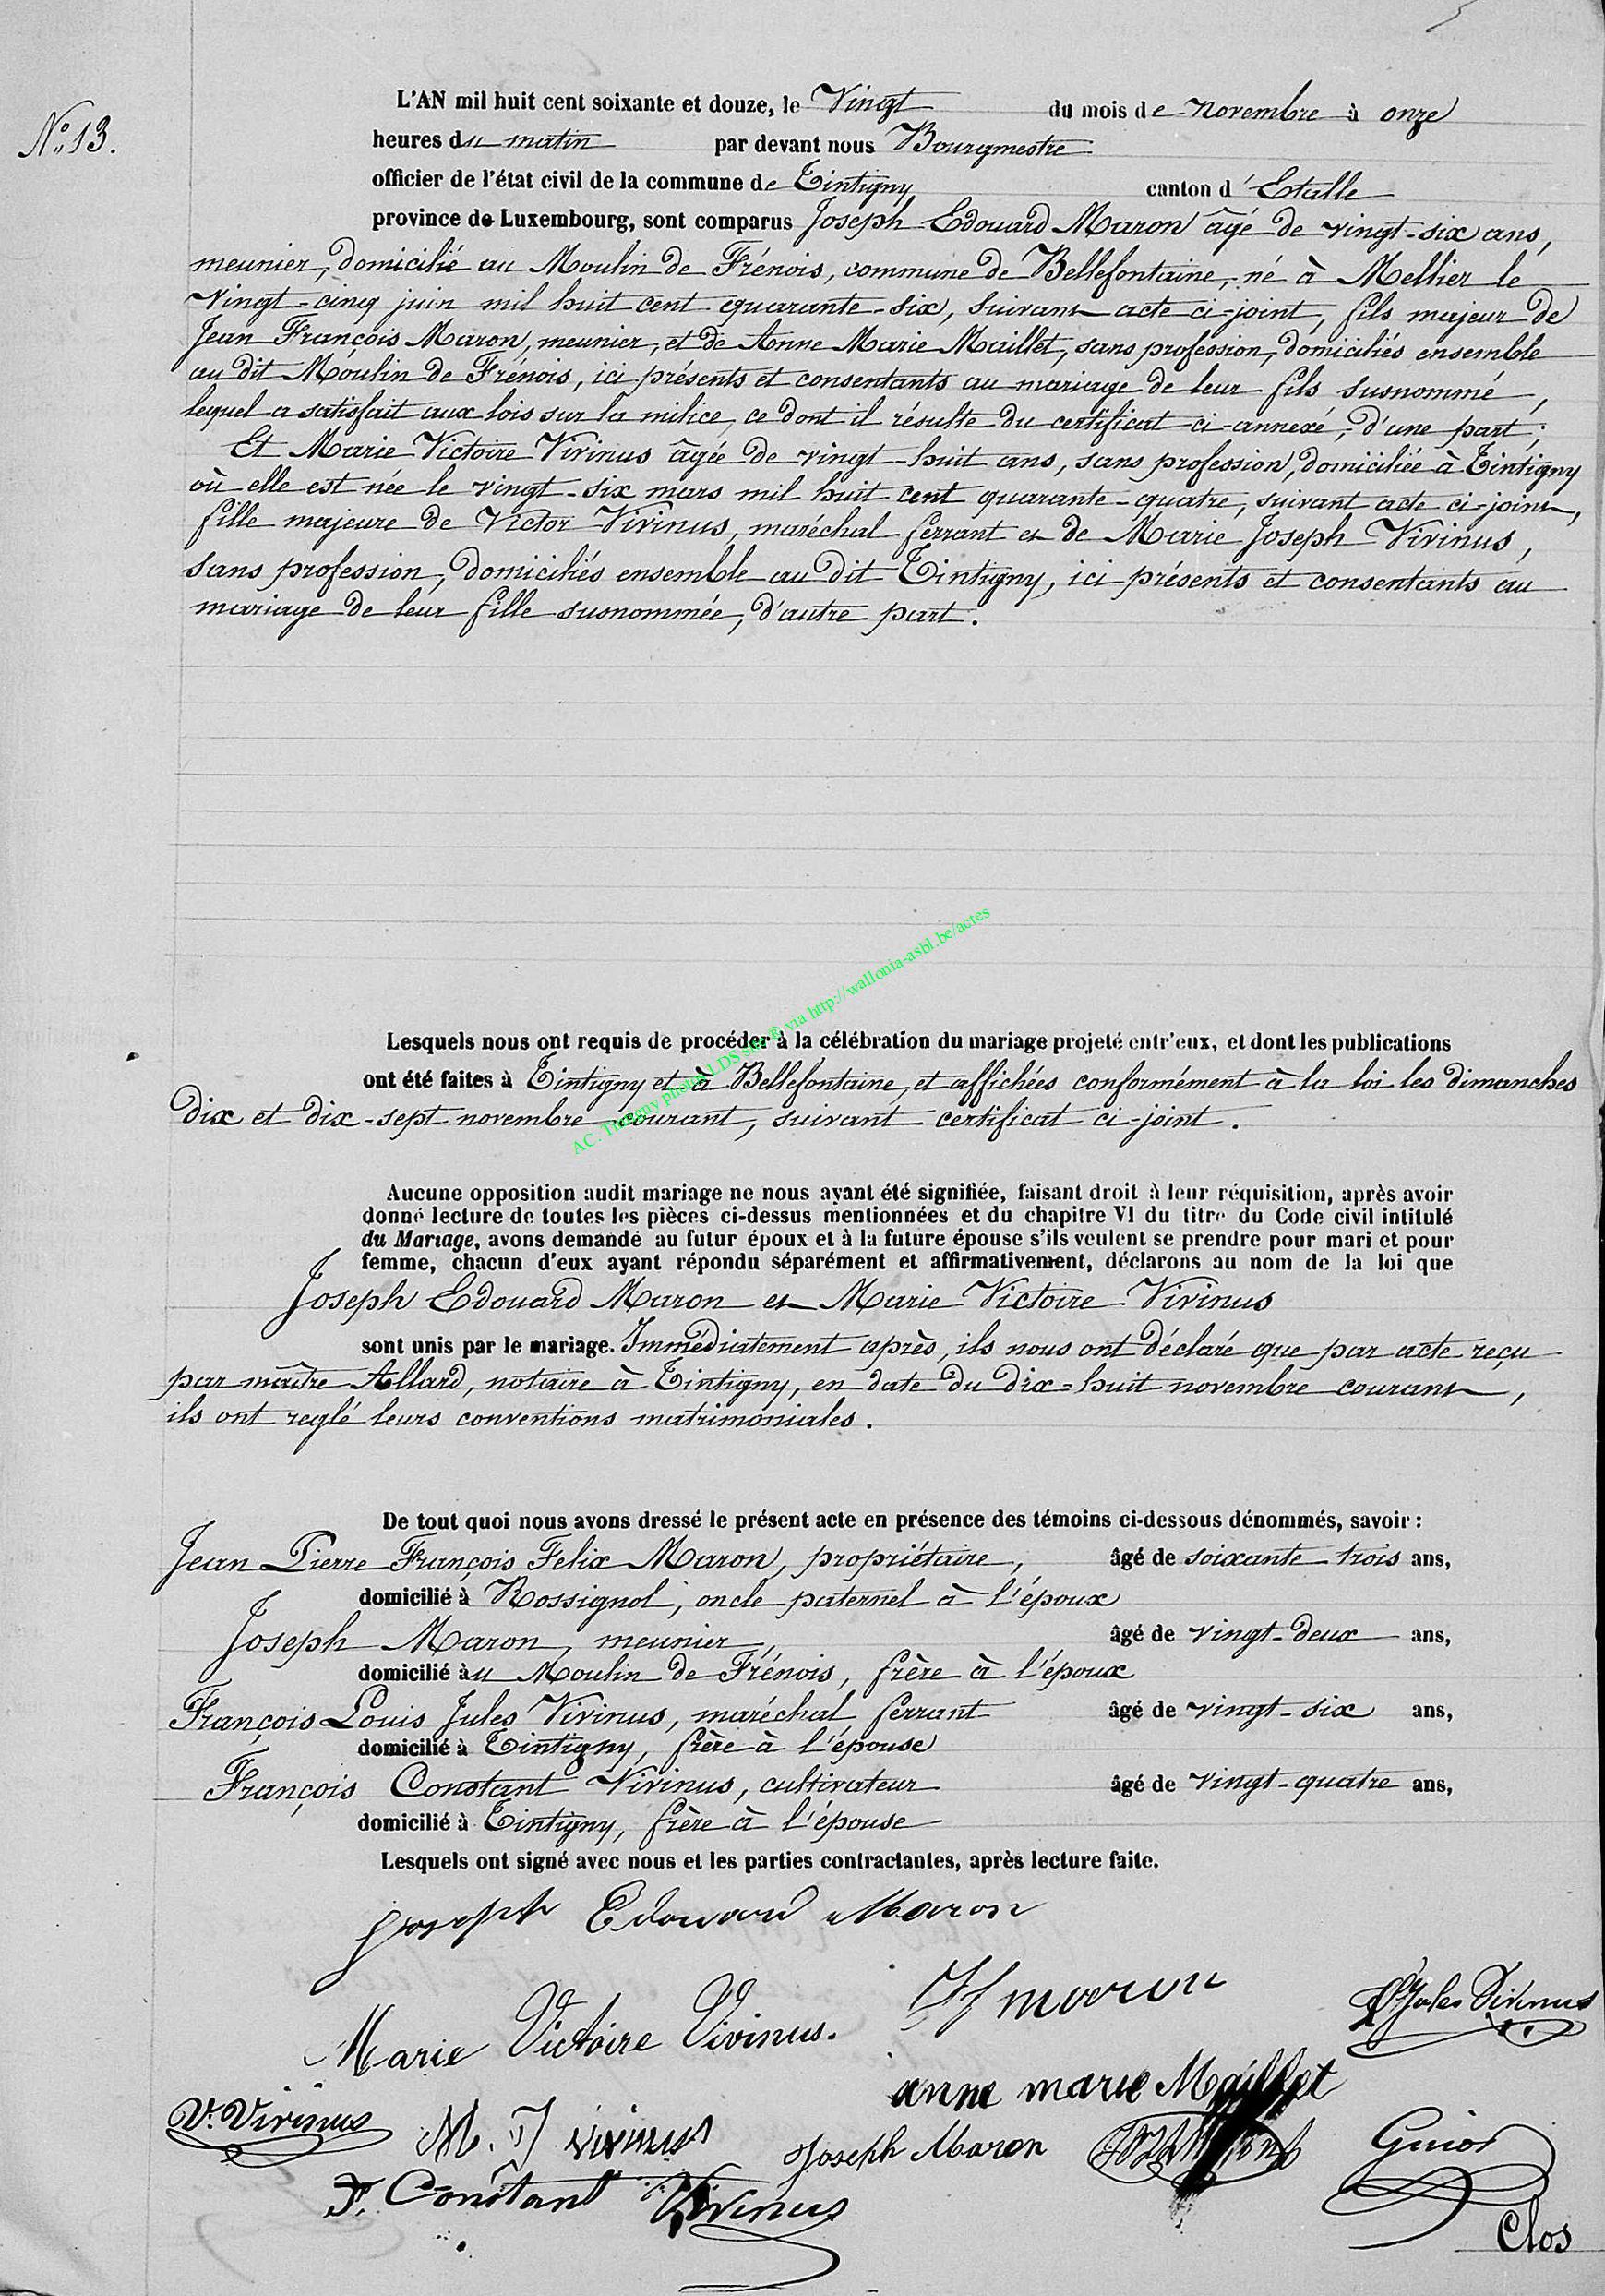 N° 13.
L'AN mil huit cent soixante et douze, le Vingt du mois de novembre à onze
heures du matin par devant nous Bourgmestre
officier de l'état civil de la commune de Tintigny canton d'Etalle
province de Luxembourg, sont comparus Joseph Edouard Maron âgé de vingt-six ans,
meunier, domicilié au Moulin de Frénois, commune de Bellefontaine, né à Mellier le
vingt-cinq juin mil huit cent quarante-six, suivant acte ci-joint, fils majeur de
Jean François Maron, meunier, et de Anne Marie Maillet, sans profession, domiciliés ensemble
au dit Moulin de Frénois, ici présents et consentants au mariage de leur fils susnommé,
lequel a satisfait aux lois sur la milice, ce dont il résulte du certificat ci-annexé, d'une part;
Et Marie Victoire Vivinus âgée de vingt-huit ans, sans profession, domiciliée à Tintigny
où elle est née le vingt-six mars mil huit cent quarante-quatre, suivant acte ci-joint,
fille majeure de Victor Vivinus, maréchal ferrant et de Marie Joseph Vivinus,
sans profession, domiciliés ensemble au dit Tintigny, ici présents et consentants au
mariage de leur fille susnommée, d'autre part.
Lesquels nous ont requis de procéder à la célébration du mariage projeté entr'eux, et dont les publications
ont été faites à Tintigny et à Bellefontaine, et affichées conformément à la loi les dimanches
dix et dix-sept novembre courant, suivant certificat ci-joint.
AC. Tintigny photos LDS sur ® via http://wallonia-asbl.be/actes
Aucune opposition audit mariage ne nous ayant été signifiée, faisant droit à leur réquisition, après avoir
donné lecture de toutes les pièces ci-dessus mentionnées et du chapitre VI du titre du Code civil intitulé
du Mariage, avons demandé au futur époux et à la future épouse s'ils veulent se prendre pour mari et pour
femme, chacun d'eux ayant répondu séparément et affirmativement, déclarons au nom de la loi que
Joseph Edouard Maron et Marie Victoire Vivinus
sont unis par le mariage. Immédiatement après, ils nous ont déclaré que par acte reçu
par maître Allard, notaire à Tintigny, en date du dix-huit novembre courant,
ils ont reglé leurs conventions matrimoniales.
De tout quoi nous avons dressé le présent acte en présence des témoins ci-dessous dénommés, savoir :
Jean Pierre François Felix Maron, propriétaire, âgé de soixante trois ans,
domicilié à Rossignol, oncle paternel à l'époux
Joseph Maron, meunier, âgé de vingt-deux ans,
domicilié au Moulin de Frénois, frère à l'époux
François Louis Jules Vivinus, maréchal ferrant âgé de vingt-six ans,
domicilié à Tintigny, frère à l'épouse
François Constant Vivinus, cultivateur âgé de vingt-quatre ans,
domicilié à Tintigny, frère à l'épouse
Lesquels ont signé avec nous et les parties contractantes, après lecture faite.
Joseph Edouard Maron
Jf maron
Jules Vivinus
Marie Victoire Vivinus.
anne marie Maillet
V. Vivinus
M. J vivinus
Joseph Maron
F. Constant Vivinus
Clos